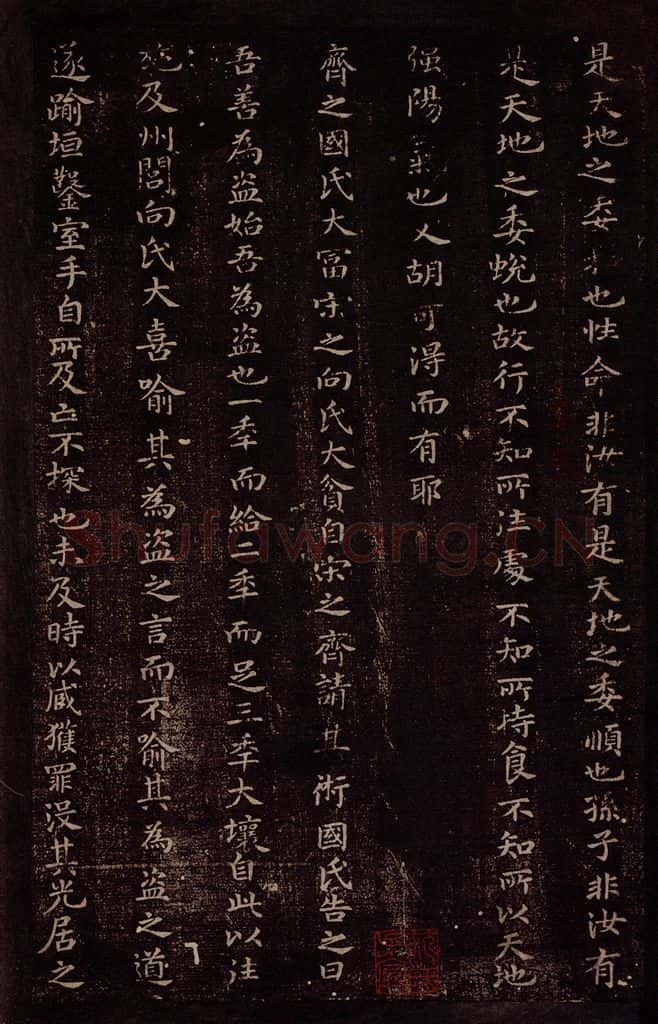 是天地之委和也性命非汝有是天地之委順也孫子非汝有
是天地之委蛻也故行不知所往處不知所持食不知所以天地
强陽氣也又胡可得而有耶
齊之國氏大冨宋之向氏大貧自宋之齊請其術國氏告之曰
吾善為盗始吾為盗也一年而給二年而足三年大壤自此以往
施及州閭向氏大喜喻其為盗之言而不喻其為盗之道
遂踰垣鑿室手自所及亡不探也未及時以臧獲罪没其先居之
Shufawang.CN